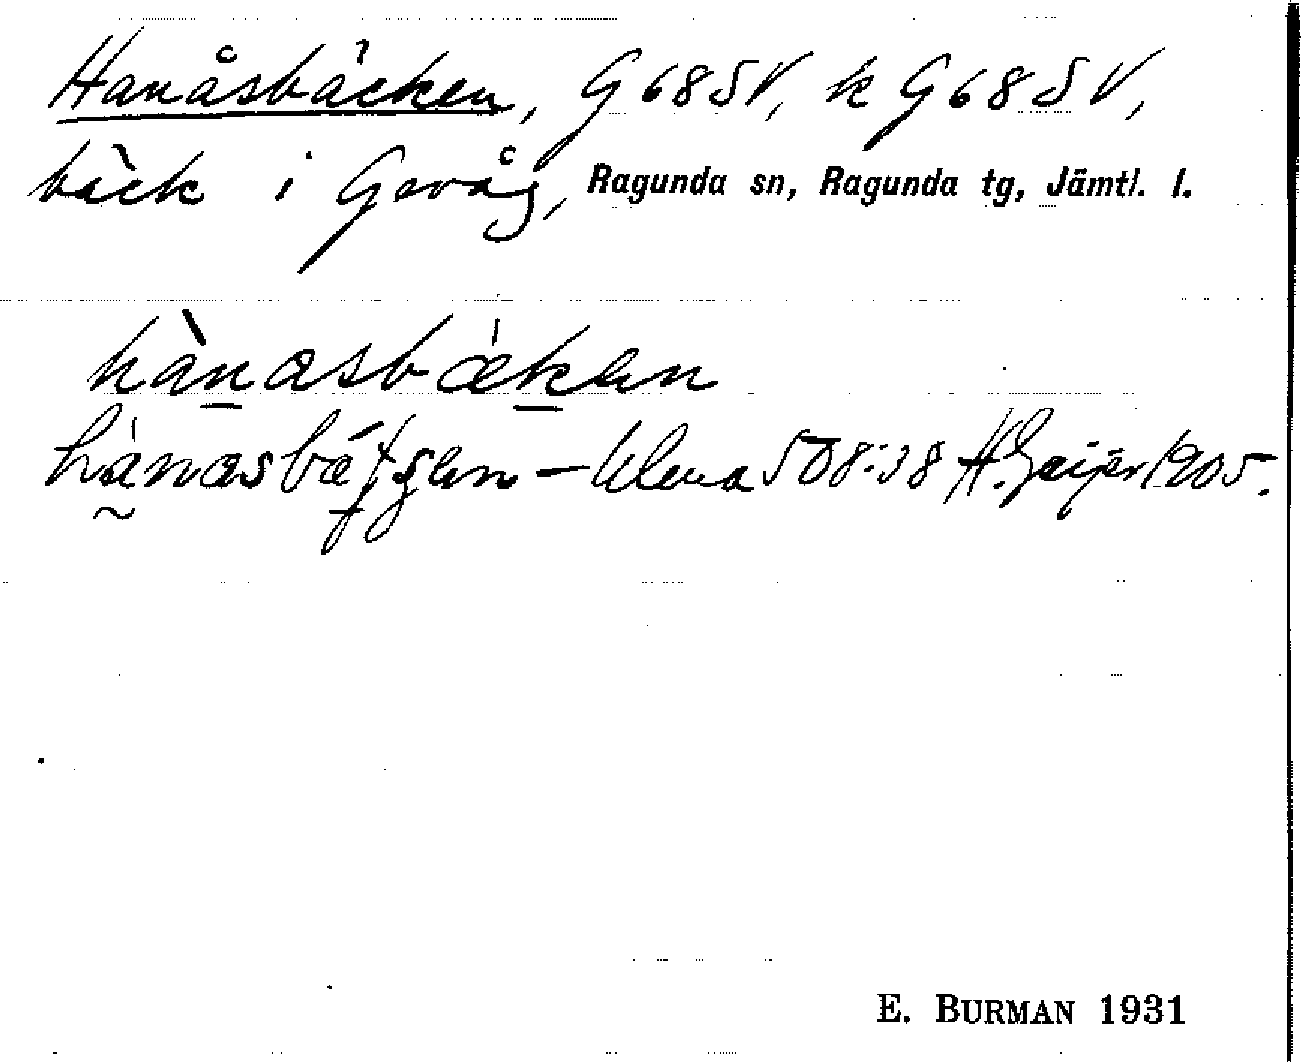 Hanåsbäcken, G 68 SV, k G 68 SV,
bäck i Gevåg, Ragunda sn, Ragunda tg, Jämtl. l.
hànasbækan
hànasbæ – H. Geijer 1905.
E. BURMAN 1931